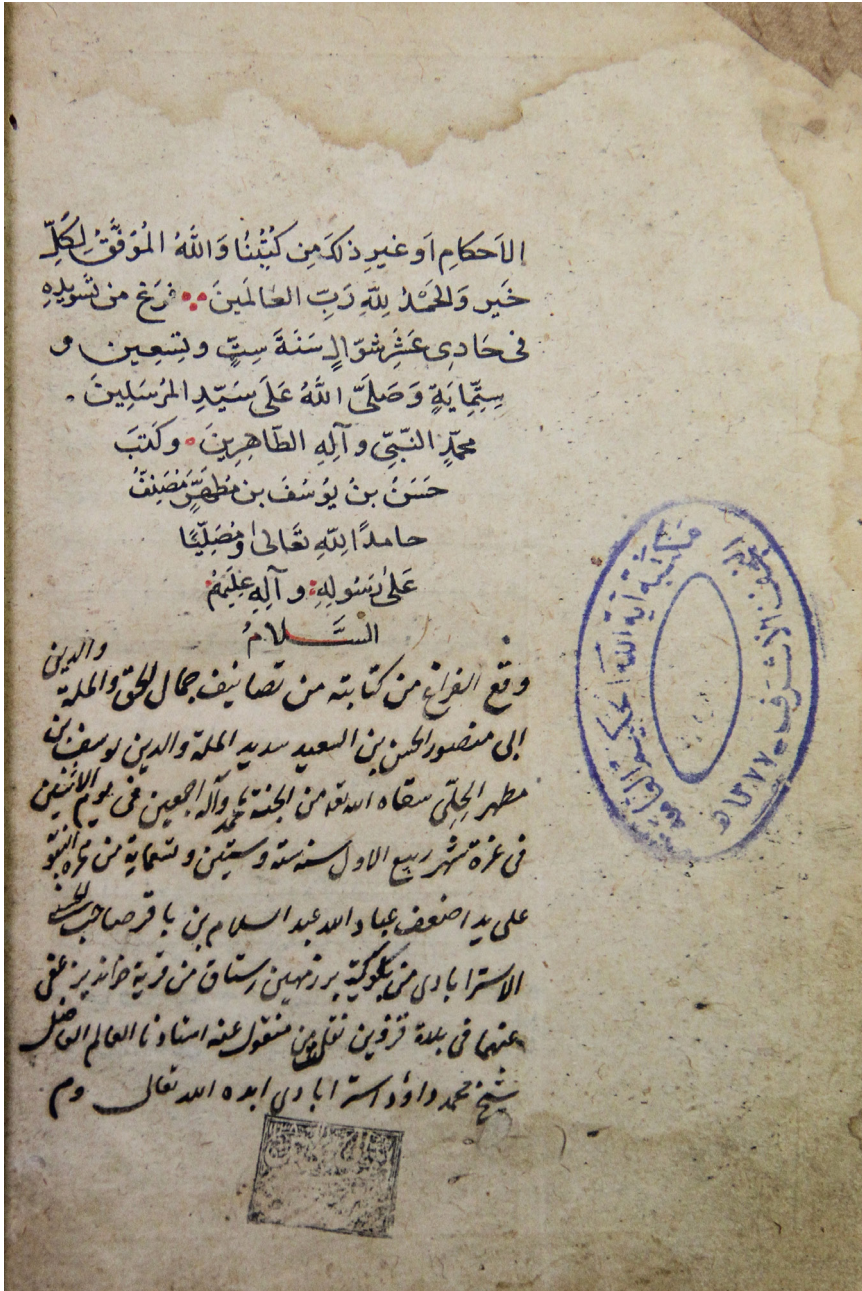 الاَحكامِ اَو غيرِ ذلكَ مِن كُتُبُنَا وَاللَّهُ المُوَفَّقُ لِكُلِّ
خَيرٍ وَالحَمْدُ لِلَّهِ رَبِّ العَالَمَينَ فرَغ من تسويدِهِ
فى حَادِى عَشَرِ شوّالٍ سَنَةَ سِتٍّ وتِسعِين و
سِتِّمِايَةٍ وَصَلىَّ اللَّهُ عَلَى سَيّدِ المُرسَلِينَ
محمّدٍ النّبِىّ وآلِهِ الطّاهِرِينَ وكَتبَ
حَسَنُ بنُ يوُسُفَ بن مُطهَّرٍ مُصَنِفُ
حامدًا لِلّهِ تعَالىٰ وَمُصَلِيًّا
عَلىٰ رَسُولِهِ وآلِهِ عليَهمُ
السَّلامُ
وقع الفراغ من كتابته من تصانيف جمال الحق والملة والدين
ابى منصور الحسن بن السعيد سديد الملة والدين يوسف بن
مطهر الحِلّى سقاه الله من الجنة بمحمد وآله اجمعين فى يوم الاثنين
فى غرة شهر ربيع الاول سنه سته وستين وتسماية من
على يد اضعف عباد الله عبد السلام بن باقر صاحب
الاسترابادى من رستاق من قرية عفى
عنهما فى بلدة قزوين منقول عنه استادنا العالم الفاضل
شيخ محمد داؤد استرابادى ابده الله تعالى
مكتبة آية الله الحكيم العامة
النجف الأشرف ١٣٧٧ ه